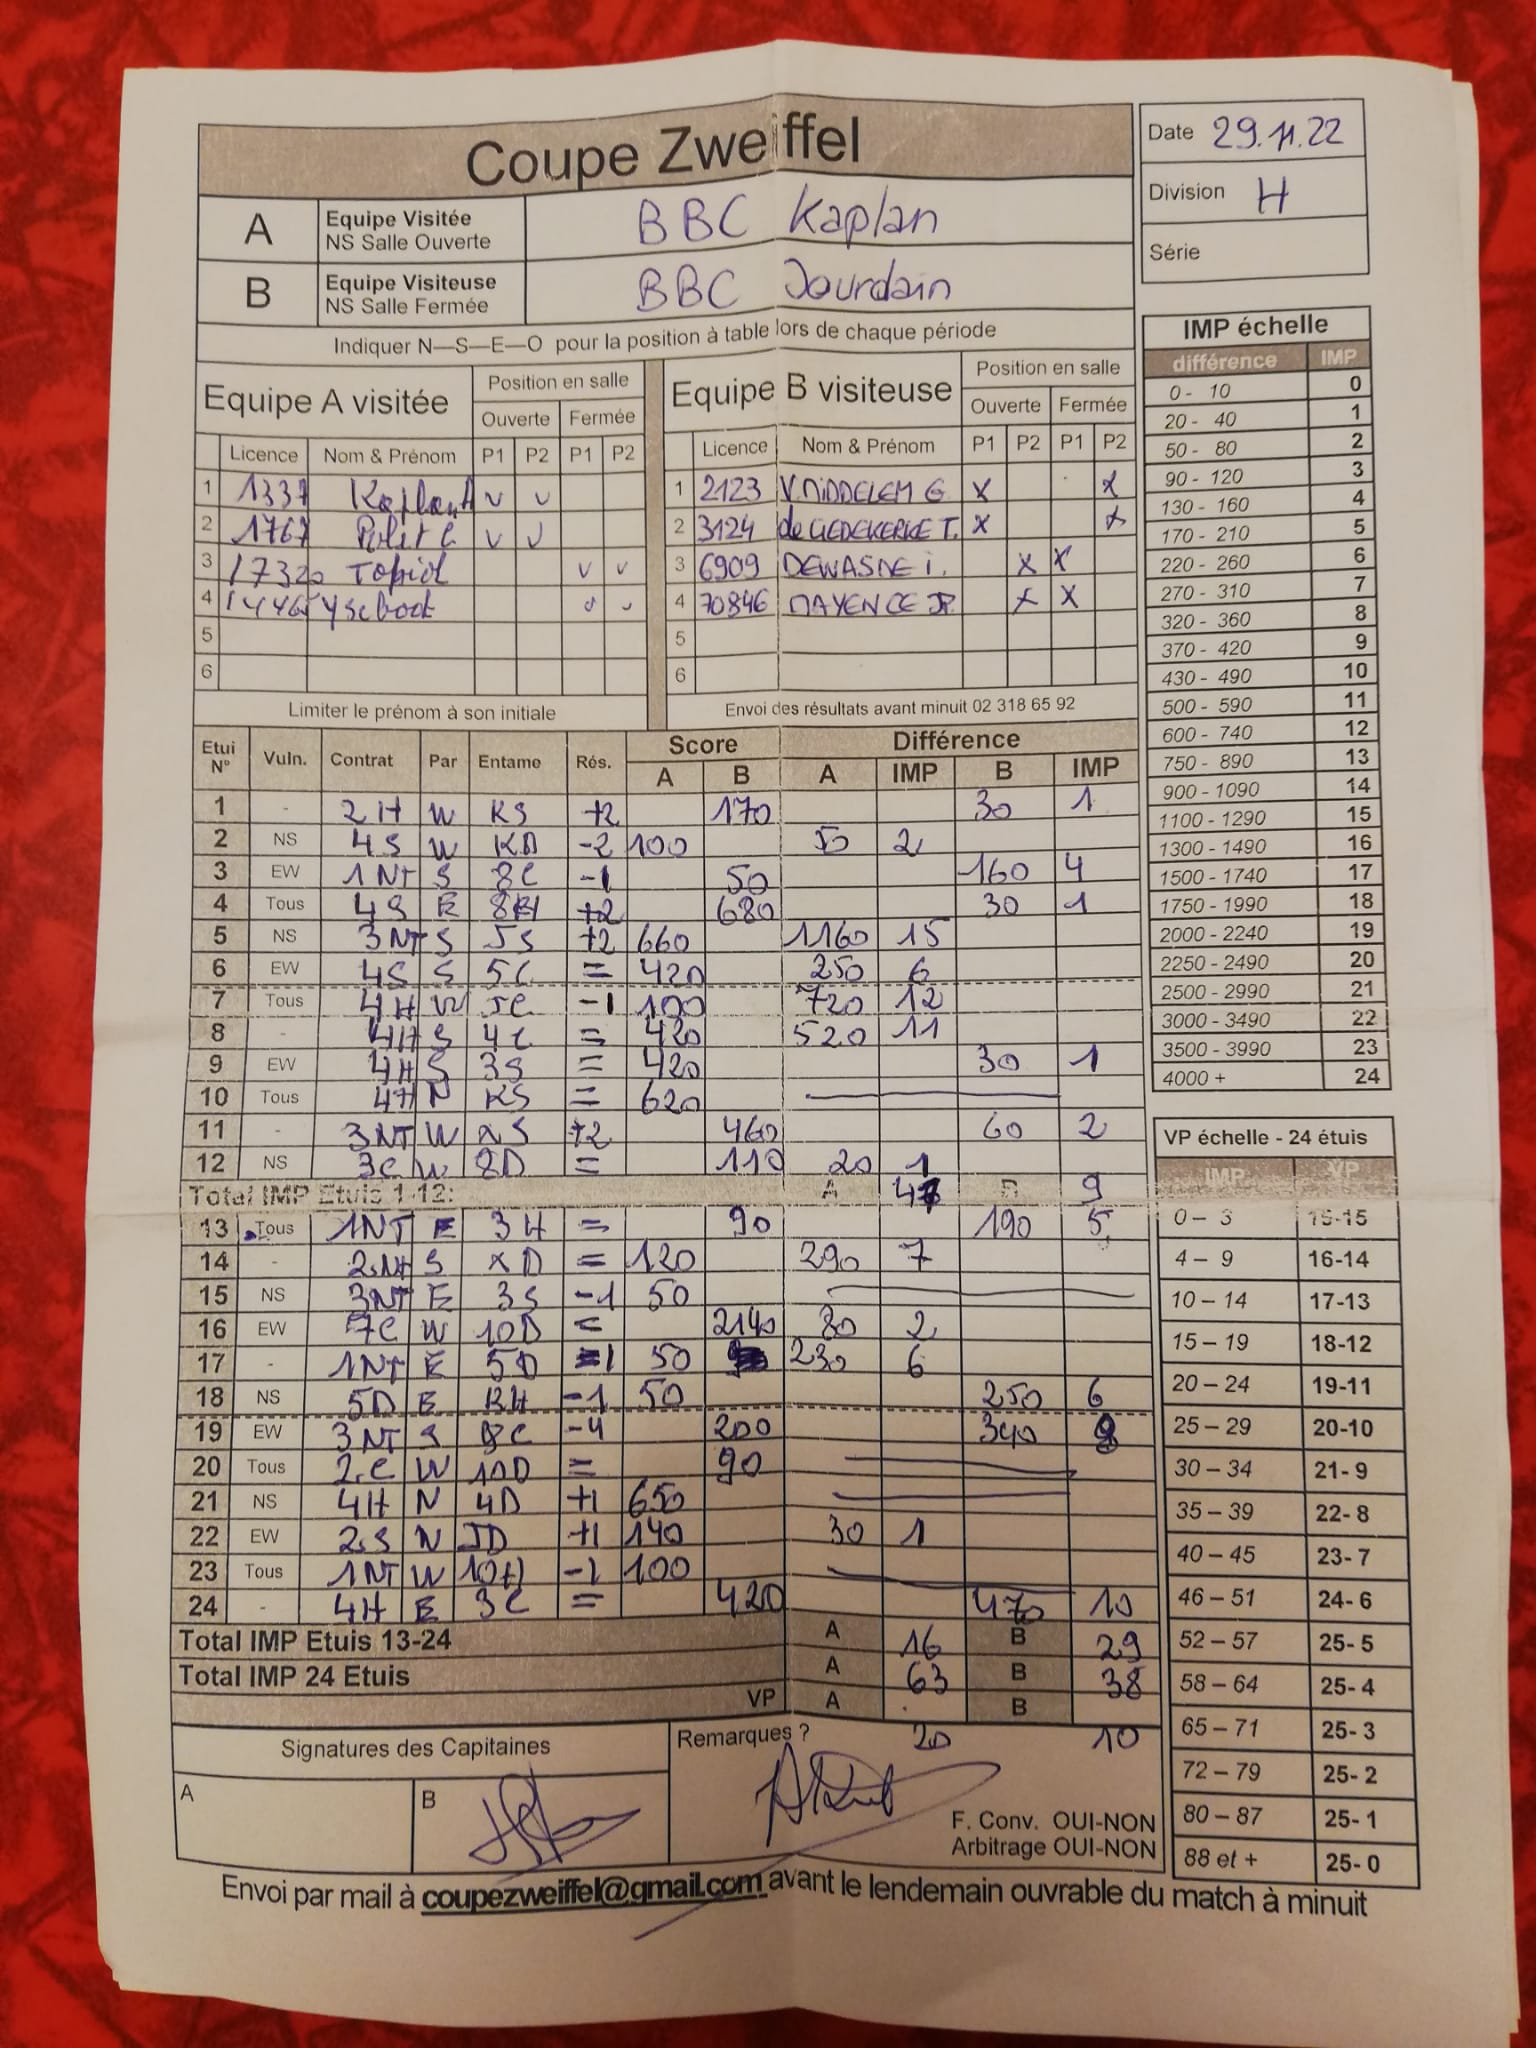 Coupe Zweiffel
Date 29.11.22
Division H
Série
A Equipe Visitée NS Salle Ouverte BBC Kaplan
B Equipe Visiteuse NS Salle Fermée BBC Jourdain
Indiquer N—S—E—O pour la position à table lors de chaque période
Equipe A visitée Position en salle
Ouverte Fermée
Licence Nom & Prénom P1 P2 P1 P2
1 1337 Kaplan v v
2 1767 Polet C v v
3 17320 Topiol v v
4 14465 Yseboot v v
5
6
Limiter le prénom à son initiale
Equipe B visiteuse Position en salle
Ouverte Fermée
Licence Nom & Prénom P1 P2 P1 P2
1 2123 V.MIDDELEM G. x x
2 3124 de LIEDEKERKE T. x x
3 6909 DEWASME i. x x
4 70846 MAYENCE JP. x x
5
6
Envoi des résultats avant minuit 02 318 65 92
IMP échelle
différence IMP
0 - 10 0
20 - 40 1
50 - 80 2
90 - 120 3
130 - 160 4
170 - 210 5
220 - 260 6
270 - 310 7
320 - 360 8
370 - 420 9
430 - 490 10
500 - 590 11
600 - 740 12
750 - 890 13
900 - 1090 14
1100 - 1290 15
1300 - 1490 16
1500 - 1740 17
1750 - 1990 18
2000 - 2240 19
2250 - 2490 20
2500 - 2990 21
3000 - 3490 22
3500 - 3990 23
4000 + 24
Etui N° Vuln. Contrat Par Entame Rés. Score Différence
A B A IMP B IMP
1 - 2H W KS +2 170 30 1
2 NS 4S W KD -2 100 50 2
3 EW 1NT S 8C -1 50 160 4
4 Tous 4S E 8H +2 680 30 1
5 NS 3NT S JS +2 660 1160 15
6 EW 4S S 5C = 420 250 6
7 Tous 4H W JC -1 100 720 12
8 - 4H S 4C = 420 520 11
9 EW 4H S 3S = 420 30 1
10 Tous 4H N KS = 620
11 - 3NT W xS +2 460 60 2
12 NS 3C W 8D = 110 20 1
Total IMP Etuis 1-12: A 47 B 9
13 Tous 1NT E 3H = 90 190 5
14 - 2NT S xD = 120 290 7
15 NS 3NT E 3S -1 50
16 EW 7C W 10D = 2140 80 2
17 - 1NT E 5D -1 50 230 6
18 NS 5D E KH -1 50 250 6
19 EW 3NT S 8C -4 200 340 8
20 Tous 2C W 10D = 90
21 NS 4H N 4D +1 650
22 EW 2S N JD +1 140 30 1
23 Tous 1NT W 10H -1 100
24 - 4H E 3C = 420 470 10
Total IMP Etuis 13-24 A 16 B 29
Total IMP 24 Etuis A 63 B 38
VP A B
20 10
VP échelle - 24 étuis
IMP VP
0 – 3 15-15
4 – 9 16-14
10 – 14 17-13
15 – 19 18-12
20 – 24 19-11
25 – 29 20-10
30 – 34 21- 9
35 – 39 22- 8
40 – 45 23- 7
46 – 51 24- 6
52 – 57 25- 5
58 – 64 25- 4
65 – 71 25- 3
72 – 79 25- 2
80 – 87 25- 1
88 et + 25- 0
Signatures des Capitaines
A
B
Remarques ?
F. Conv. OUI-NON
Arbitrage OUI-NON
Envoi par mail à coupezweiffel@gmail.com avant le lendemain ouvrable du match à minuit